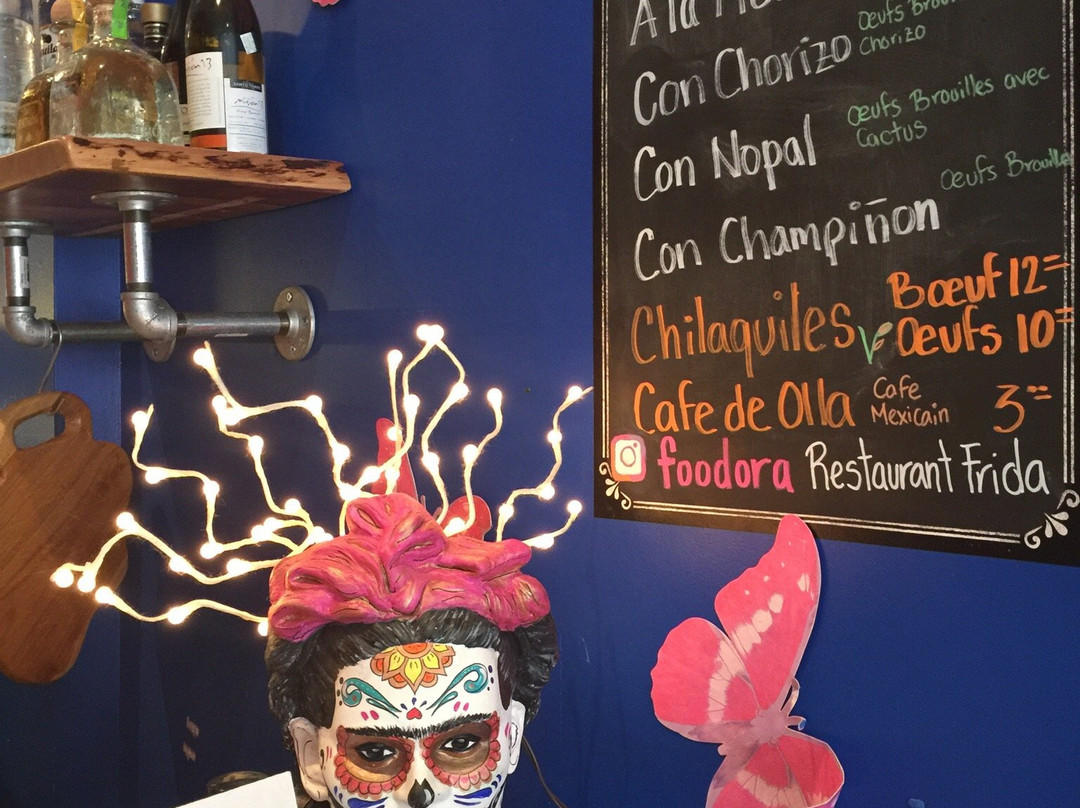 A la
Oeufs
Chorizo
Con Chorizo
Oeufs Brouilles avec
Cactus
Con Nopal
Oeufs Brouilles
Con Champiñon
Chilaquiles
Boeuf 12=
Oeufs 10=
Cafe de Olla
Cafe
Mexicain
3=
foodora Restaurant Frida